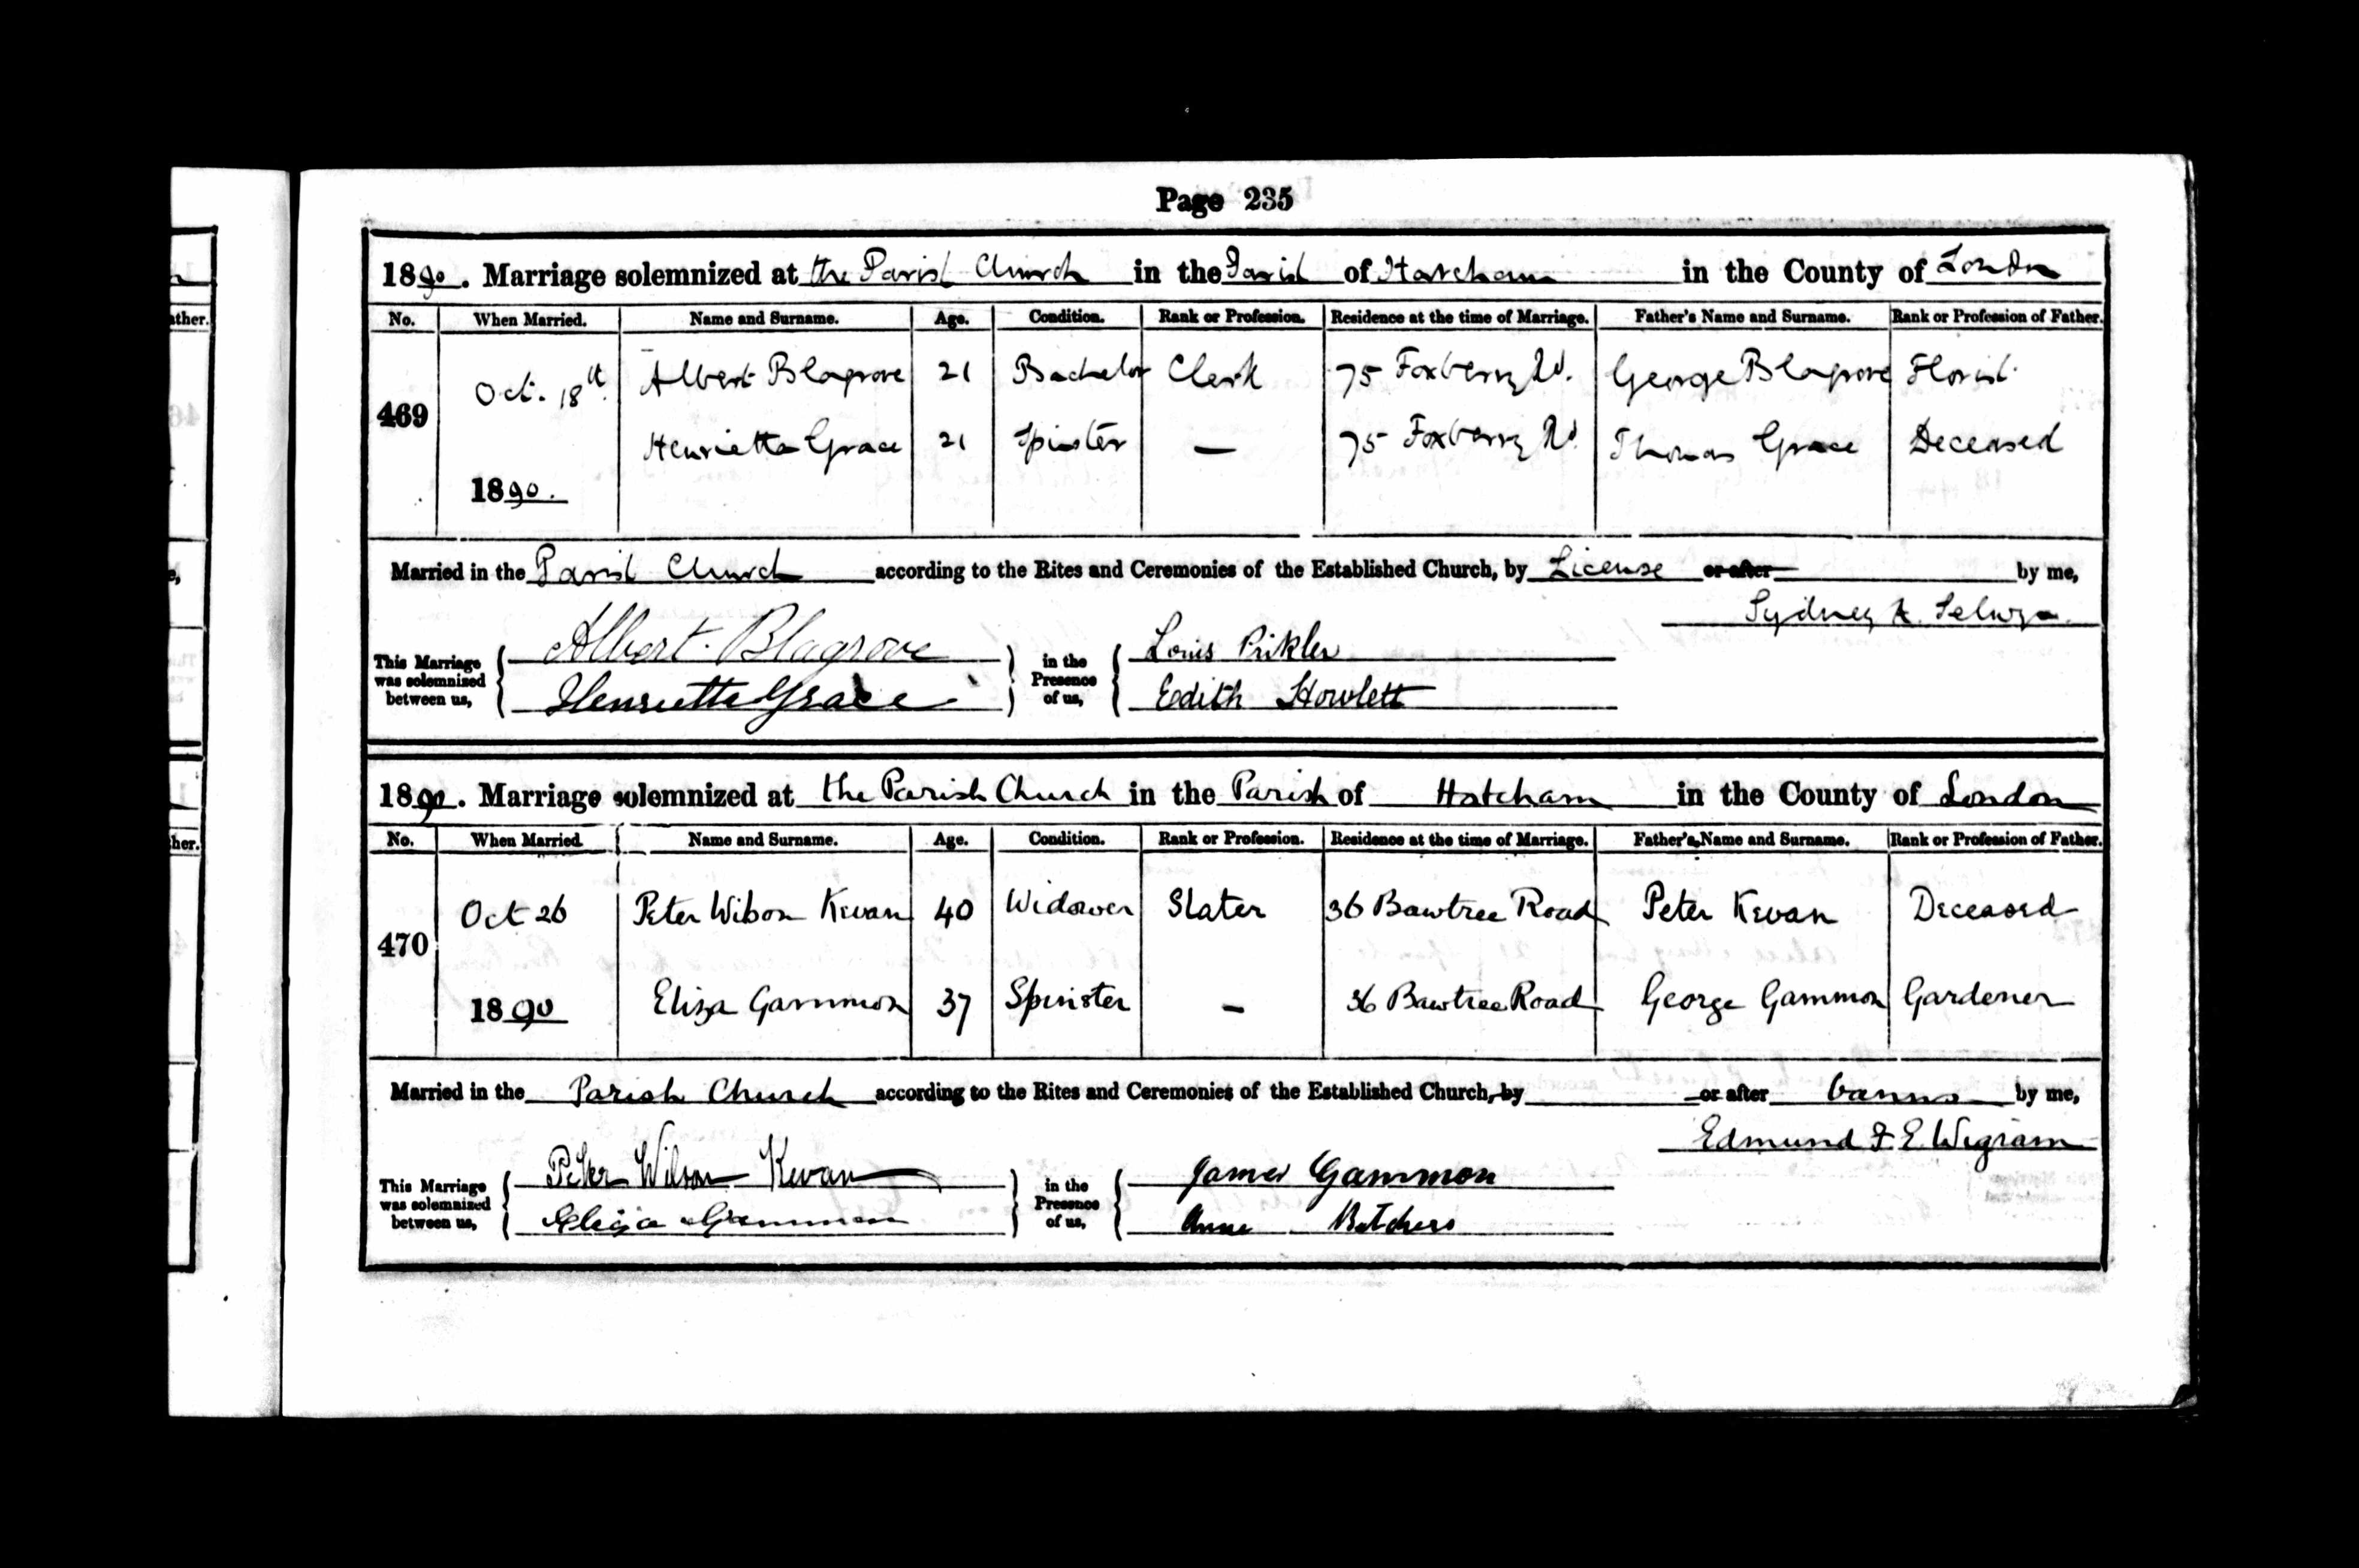 Page 235
1890. Marriage solemnized at the Parish Church in the Parish of Hatcham in the County of London
No. When Married. Name and Surname. Age. Condition. Rank or Profession. Residence at the time of Marriage. Father's Name and Surname. Rank or Profession of Father.
Oct. 18th Albert Blagrove 21 Bachelor Clerk 75 Foxberry Rd. George Blagrove Florist
469
Henrietta Grace 21 Spinster — 75 Foxberry Rd Thomas Grace Deceased
1890.
Married in the Parish Church according to the Rites and Ceremonies of the Established Church, by License or after by me,
Sydney A. Selwyn.
This Marriage was solemnized between us, Albert Blagrove in the Presence of us, Louis Pikler
Henrietta Grace Edith Howlett
1890. Marriage solemnized at the Parish Church in the Parish of Hatcham in the County of London
No. When Married Name and Surname. Age. Condition. Rank or Profession. Residence at the time of Marriage. Father's Name and Surname. Rank or Profession of Father.
Oct 26 Peter Wilson Kevan 40 Widower Slater 36 Bawtree Road Peter Kevan Deceased
470
1890 Eliza Gammon 37 Spinster - 36 Bawtree Road George Gammon Gardener
Married in the Parish Church according to the Rites and Ceremonies of the Established Church, by or after banns by me,
Edmund F. E. Wigram
This Marriage was solemnized between us, Peter Wilson Kevan in the Presence of us, James Gammon
Eliza Gammon Anne Butchers